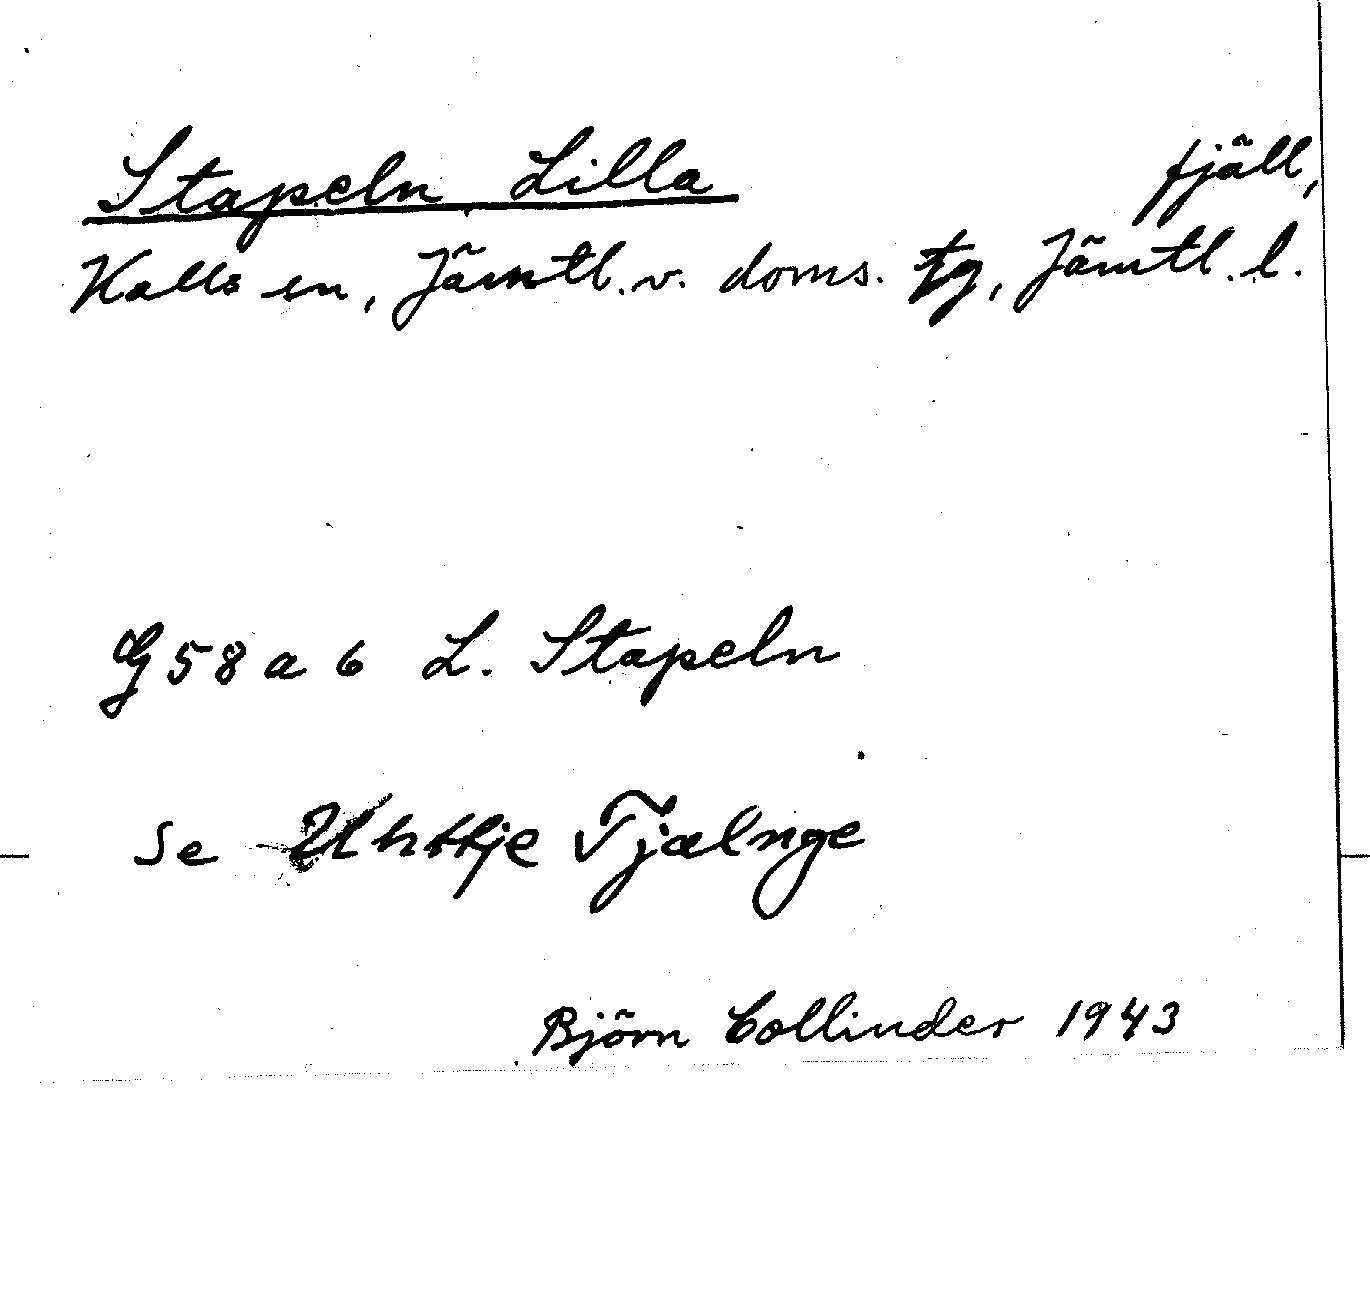 Stapeln, Lilla fjäll,
Kalls sn, Jämtl. v. doms. tg, Jämtl. l.
G 58 a 6 L. Stapeln
Se Uhttje Tjælnge
Björn Collinder 1943